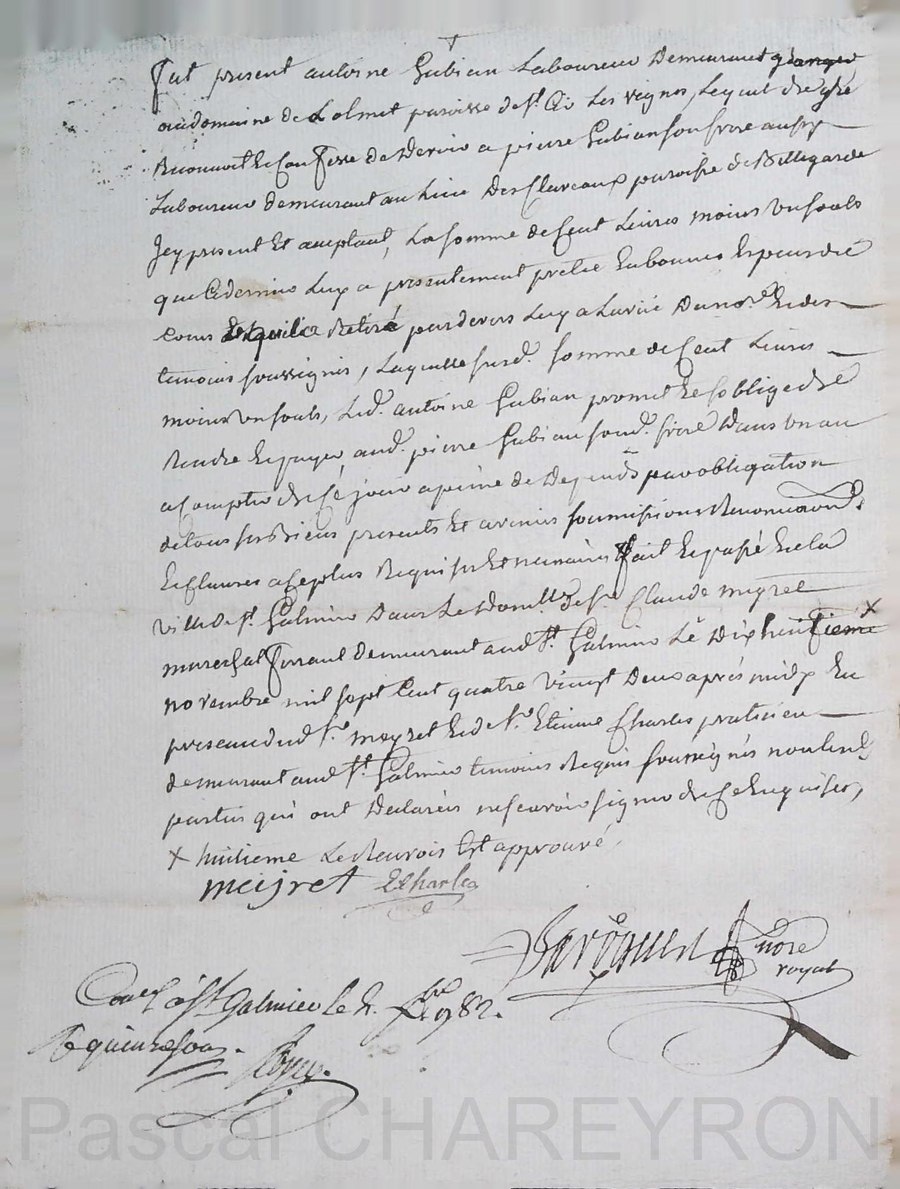 fut present antoine Gubian Laboureur Demeurant granger
audomaine de Lolmet paroisse de St. Ci Les vignes, Lequel de gré
Reconnoit et Confesse de Devoir a pierre Gubian son frere aussy
Laboureur demeurant au Lieu Des Claveaux paroisse de Bellegarde
Jcy present Et acceptant, La somme de Cent Livres moins un sols
que Cedernier Luy a presentement pretée En bonnes Especes de
Cours Et quil a Retiré pardevers Luy a La vüe Du nore. Et des
temoins soussignés, Laquelle susd. somme de Cent Livres
moins un sols, Led. antoine Gubian promet Et soblige de
Rendre Et payer aud. pierre Gubian sond. frere Dans un an
a Compter de Ce jour a peine de Depends par obligation
de tous ses Biens presents Et avenirs soumissions Renonciaons.
Et Clauses a Ce plus Requises Et necessaires fait Et passé En la
ville de st. Galmier Dans Le Domille de sr. Claude meyret
mareschal ferrant demeurant aud St. Galmier Le Dix huitieme x
novembre mil sept Cent quatre vingt Deux aprés midy En
presence dud sr. meyret Et de sr. Etienne Charles praticien
demeurant aud st. Galmier temoins Requis soussignés non les
parties qui ont Declarées ne scavoir signer de Ce Enquises,
x huitieme Le Renvois Est approuvé
meijret ECharles
nore
royal
Con.lé à St. Galmier le 2. xbre 1782.
R quinze sous.